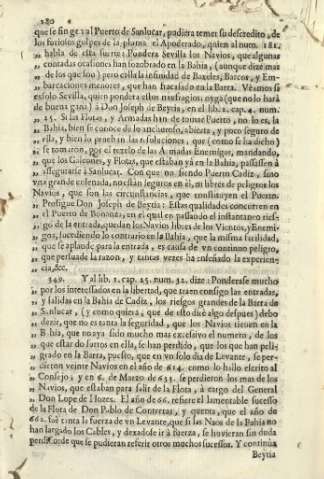 280
que se finge al Puerto de Sanlucar, pudiera temer su descredito, de
los furiosos golpes de la pluma el Apoderado, quien al num. 181.
habla de esta suerte: Pondera Sevilla los Navios, que algunas
contadas ocasiones han sozobrado en la Bahia, (aunque dize mas
de los que son) pero calla la infinidad de Baxeles, Barcos, y Em-
barcaciones menores, que han
esto Sevilla, quien pondera estos naufragios; oyga (que no lo hará
de buena gana) à Don Joseph de Beytia, en el lib. 2. cap. 4. num.
15. Si las Flotas, y Armadas han de tomar Puerto, no lo es, la
Bahia, bien se conoce de lo anchurosa, abierta, y poco seguro de
ella, y bien lo prueban las que (como se ha dicho)
se tomaron, por el rezelo de las Armadas Enemigas, mandando,
que los Galeones, y Flotas, que estaban yá en la Bahia, passassen à
assegurarse à Sanlucar. Con que no siendo Puerto Cadiz, sino
vna grande ensenada, no están seguros en él, ni libres de peligros los
Navios, que son las circunstancias, que constituyen el Puerto.
Prosigue Don Joseph de Beytia: Estas qualidades concurren en
el Puerto de Bonanza, en el qual en passando el instantaneo ries-
go de la entrada, quedan los Navios libres de los Vientos, y Enemi-
gos, sucediendo lo contrario en la Bahia, que la misma facilidad,
que se aplaude para la entrada, es causa de vn continuo peligro,
que persuade la razon, y tantas vezes ha enseñado la experien-
cia, &c.
349. Y al lib. 2. cap. 25. num. 32. dize: Ponderase mucho
por los interessados en la libertad, que traen consigo las entradas,
y salidas en la Bahia de Cadiz, los riesgos grandes de la Barra de
Sanlucar, (y como quiera, que de esto diré algo despues) debo
dezir, que no es tanta la seguridad, que los Navios tienen en la
Bahia, que no aya sido mucho mas excessivo el numero, de los
que estando surtos en ella, se han perdido, que los que han peli-
grado en la Barra, puesto, que en vn solo dia de Levante, se per-
dieron veinte Navios en el año de 614. como lo hallo escrito al
Consejo; y en 6. de Marzo de 651. se perdieron los mas de los
Navios, que estaban para salir de la Flota, à cargo del General
Don Lope de Hozes. El año de 66. refiere el lamentable sucesso
de la Flota de Don Pablo de Contreras, y quenta, que el año de
661. fue tanta la fuerza de vn Levante, que si las Naos de la Bahia no
han largado los Cables, y dexadose ir à fuerza, se huvieran sin duda
perdido, de que se pudieran referir otros muchos sucessos. Y continúa
Beytia